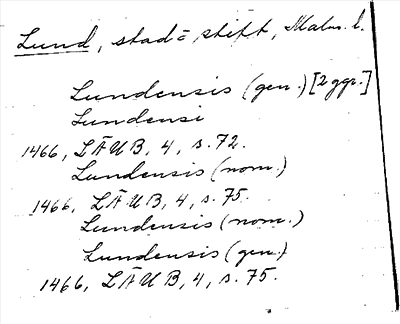 Lund, stad=, stift, Malm. l.
Lundensis (gen.) [2 ggr.]
Lundensi
1466, LÄUB, 4, s. 72.
Lundensis (nom.)
1466, LÄUB, 4, s. 75.
Lundensis (nom.)
Lundensis (gen.)
1466, LÄUB, 4, s. 75.